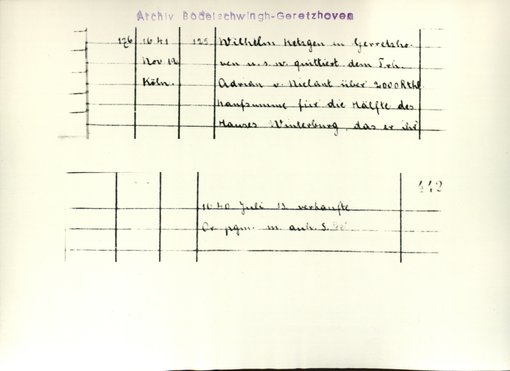 Archiv Bodelschwingh-Geretzhoven
126 1641 125 Wilhelm Ketzgen in Gerretsho-
Nov 12 ven u.s.w. quittiert dem Frh.
Köln. Adrian v. über 2000 Rthl
Kaufsumme für die Hälfte des
Hauses Winterburg, das er ihr
442
1640 Juli 13 verkaufte
Or. pgm. m. anh. S.